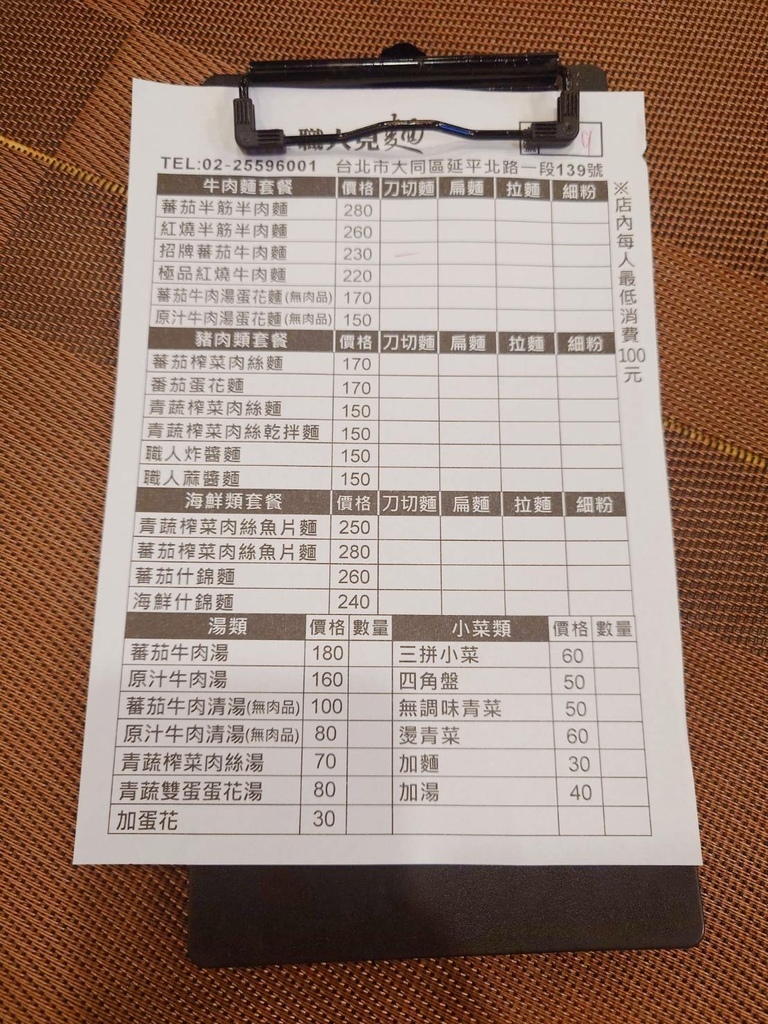 職人見麵
4
TEL:02-25596001 台北市大同區延平北路一段139號
牛肉麵套餐 價格 刀切麵 扁麵 拉麵 細粉
蕃茄半筋半肉麵 280
紅燒半筋半肉麵 260
招牌蕃茄牛肉麵 230
極品紅燒牛肉麵 220
蕃茄牛肉湯蛋花麵(無肉品) 170
原汁牛肉湯蛋花麵(無肉品) 150
豬肉類套餐 價格 刀切麵 扁麵 拉麵 細粉
蕃茄榨菜肉絲麵 170
番茄蛋花麵 170
青蔬榨菜肉絲麵 150
青蔬榨菜肉絲乾拌麵 150
職人炸醬麵 150
職人蔴醬麵 150
海鮮類套餐 價格 刀切麵 扁麵 拉麵 細粉
青蔬榨菜肉絲魚片麵 250
蕃茄榨菜肉絲魚片麵 280
蕃茄什錦麵 260
海鮮什錦麵 240
湯類 價格 數量 小菜類 價格 數量
蕃茄牛肉湯 180 三拼小菜 60
原汁牛肉湯 160 四角盤 50
蕃茄牛肉清湯(無肉品) 100 無調味青菜 50
原汁牛肉清湯(無肉品) 80 燙青菜 60
青蔬榨菜肉絲湯 70 加麵 30
青蔬雙蛋蛋花湯 80 加湯 40
加蛋花 30
※店內每人最低消費100元